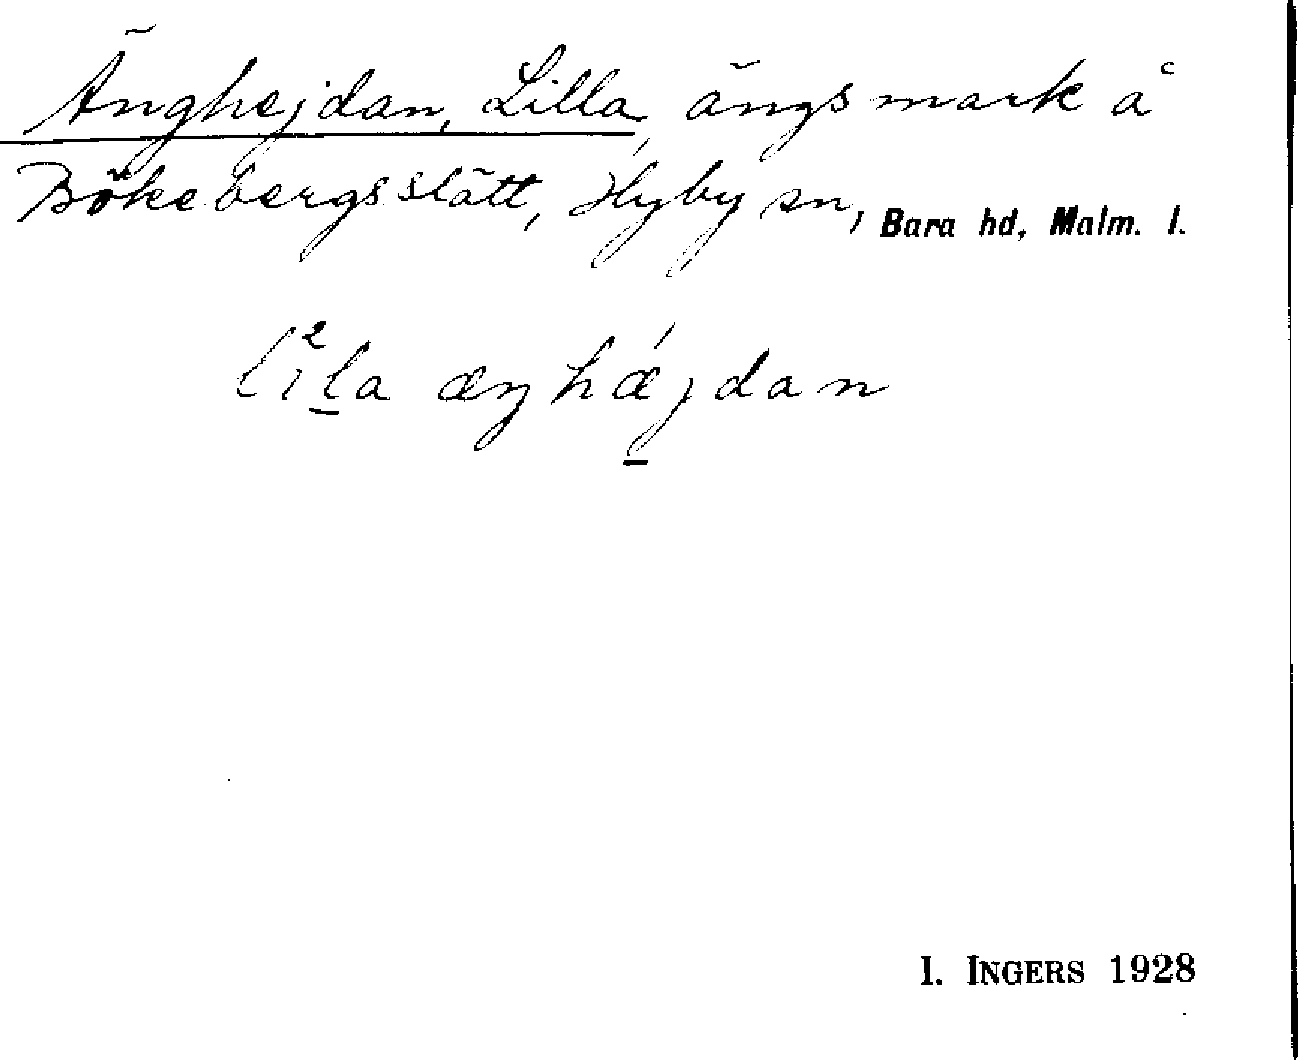 Änghejdan, Lilla, ängsmark å
Bökebergsslätt, Hyby sn, Bara hd, Malm. l.
lìla æŋhǽjdan
I. INGERS 1928